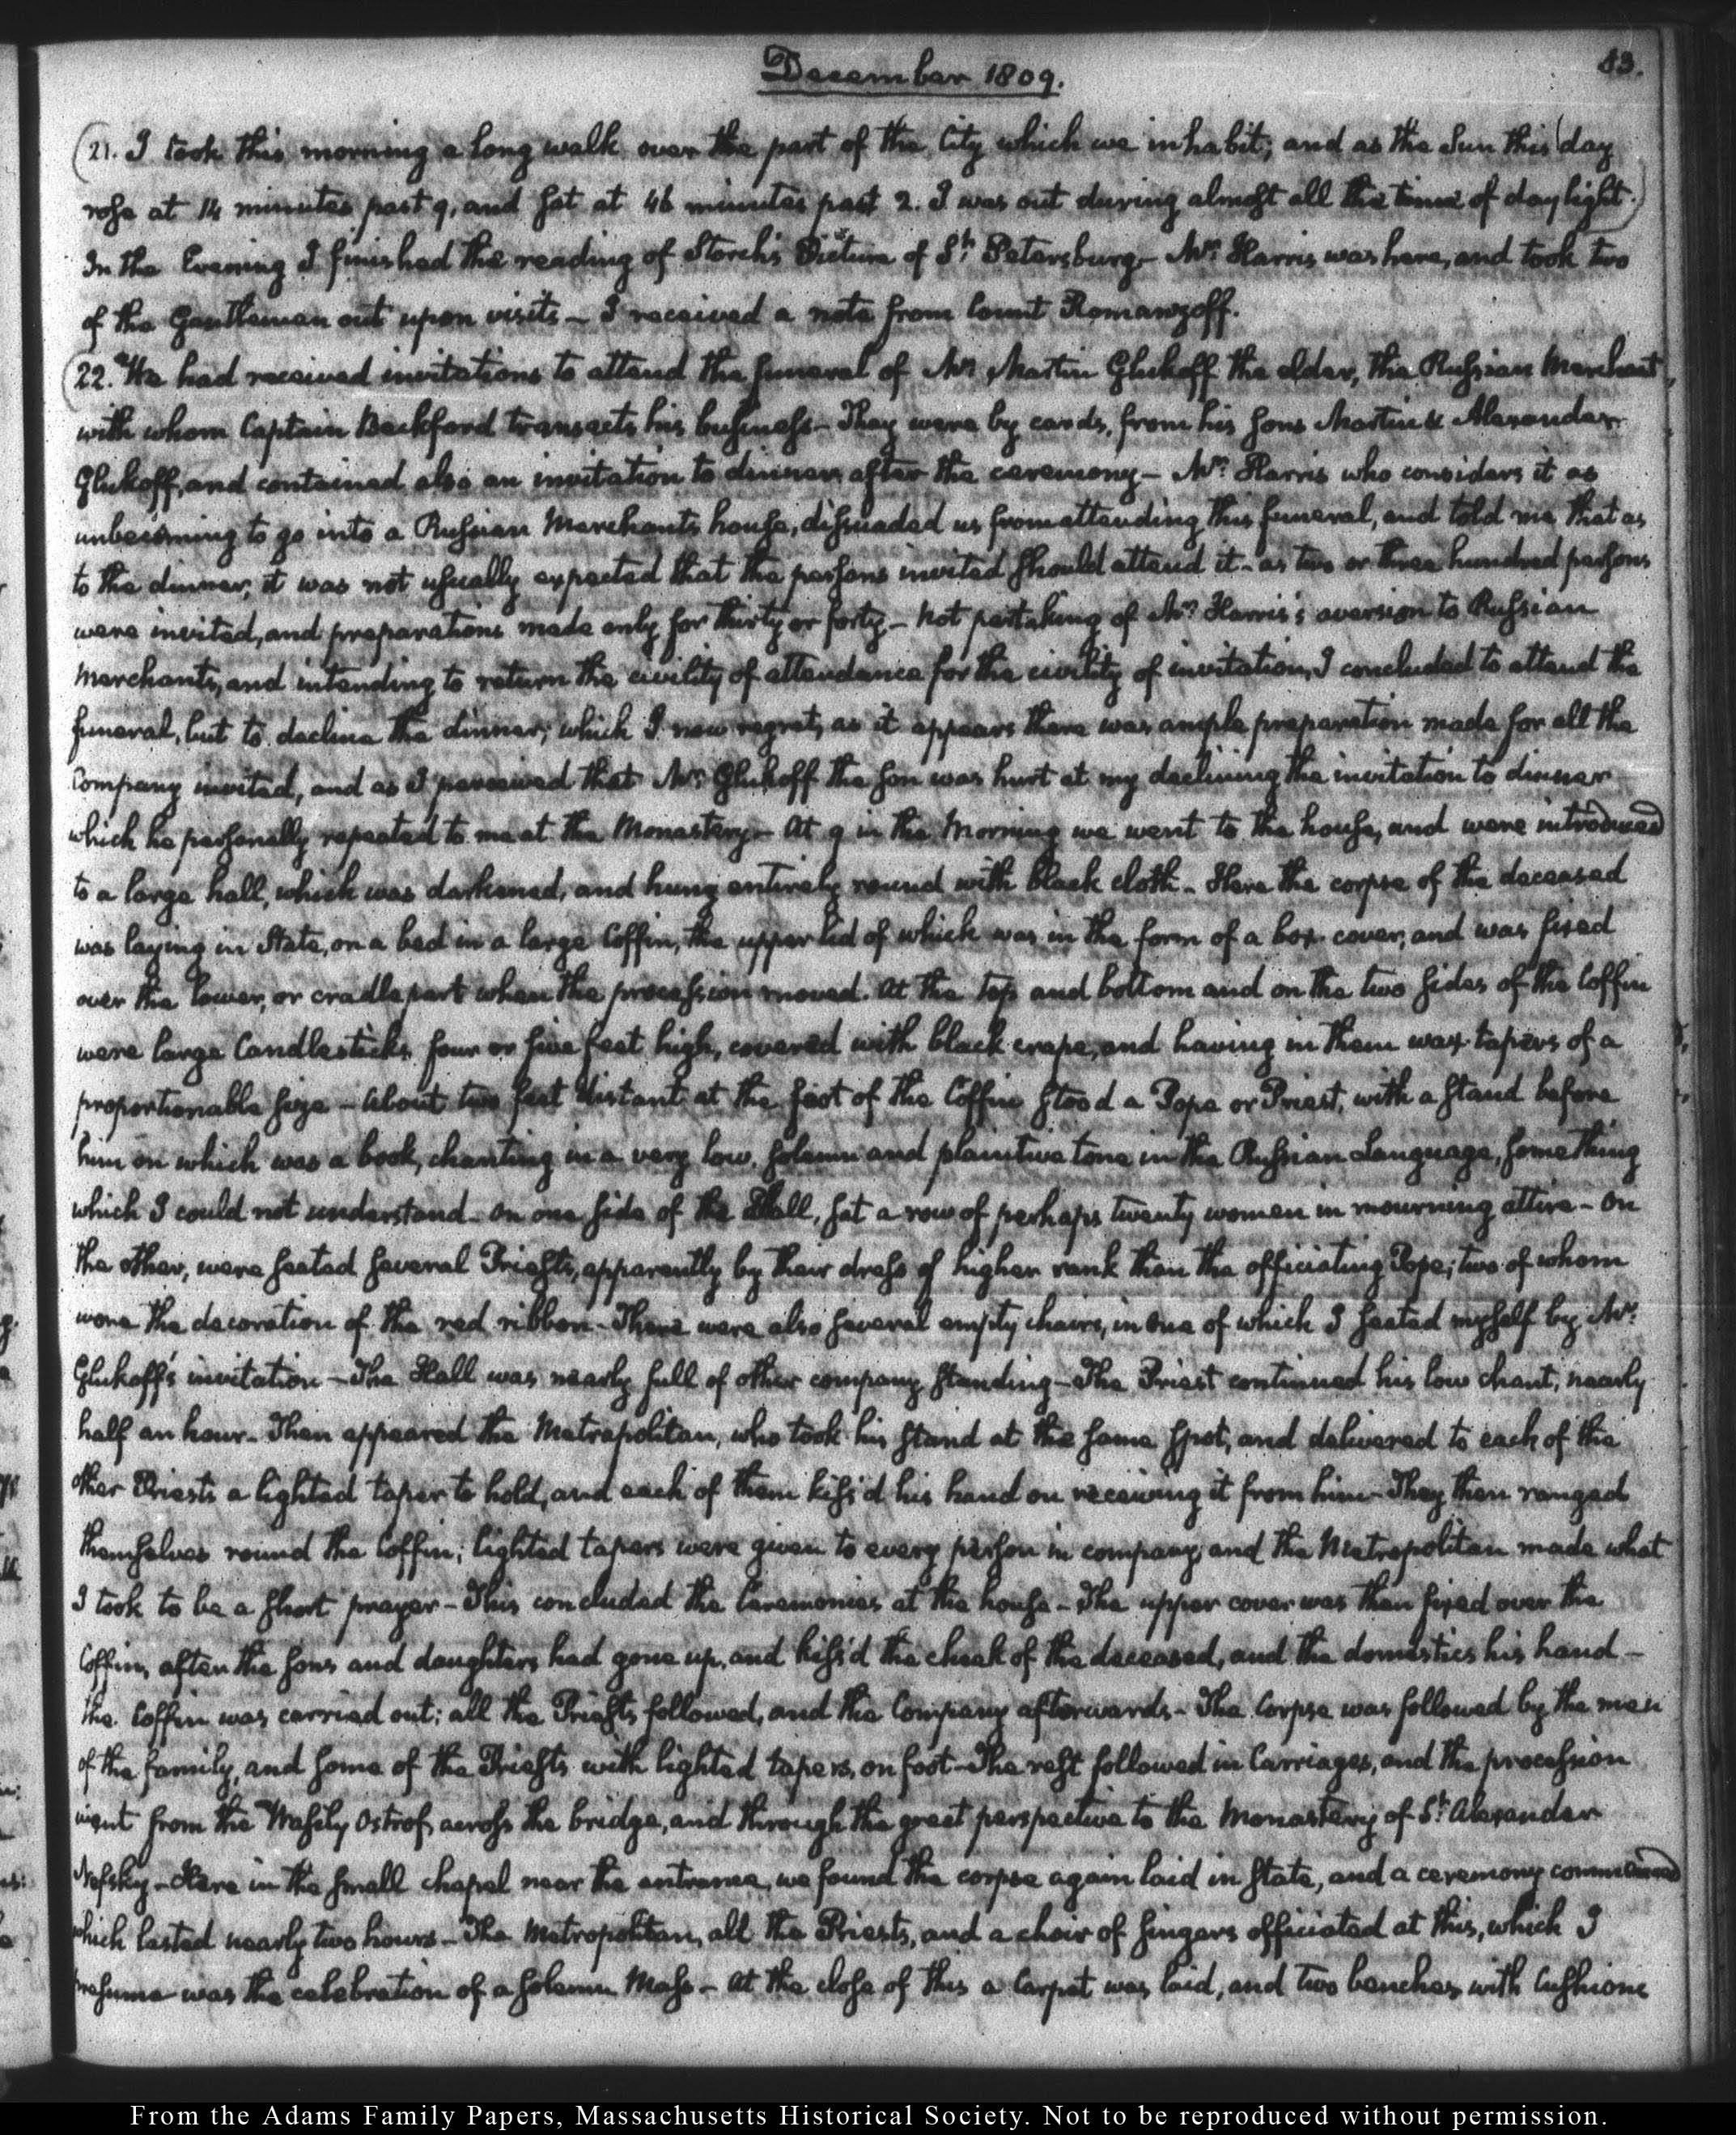 December 1809.
83.
21. I took this morning a long walk over the part of the City which we inhabit; and as the Sun this day
rose at 14 minutes past 9, and set at 46 minutes past 2. I was out during almost all the time of day light.
In the Evening I finished the reading of Storch's Picture of St. Petersburg — Mr. Harris was here, and took two
of the Gentlemen out upon visits — I received a note from Count Romanzoff.
22. We had received invitations to attend the funeral of Mr. Martin Glukoff the elder, the Russian Merchant,
with whom Captain Beckford transacts his business — They were by cards, from his sons Martin & Alexander
Glukoff, and contained also an invitation to dinner after the ceremony — Mr. Harris who considers it as
unbecoming to go into a Russian Merchants house, dissuaded us from attending this funeral, and told me that as
to the dinner, it was not usually expected that the persons invited should attend it — as two or three hundred persons
were invited, and preparations made only for thirty or forty — Not partaking of Mr. Harris's aversion to Russian
Merchants, and intending to return the civility of attendance for the civility of invitation, I concluded to attend the
funeral, but to decline the dinner; which I now regret, as it appears there was ample preparation made for all the
Company invited, and as I perceived that Mr. Glukoff the son was hurt at my declining the invitation to dinner
which he personally repeated to me at the Monastery — At 9 in the Morning we went to the house, and were introduced
to a large hall, which was darkened, and hung entirely round with black cloth — Here the corpse of the deceased
was laying in State, on a bed in a large Coffin, the upper lid of which was in the form of a box-cover, and was fixed
over the lower, or cradle part when the procession moved. At the top and bottom and on the two sides of the Coffin
were large Candlesticks four or five feet high, covered with black crape, and having in them wax-tapers of a
proportionable size — About two feet distant at the foot of the Coffin stood a Pope or Priest, with a stand before
him on which was a book, chanting in a very low, solemn and plaintive tone in the Russian Language, something
which I could not understand — On one side of the Hall, sat a row of perhaps twenty women in mourning attire — On
the other, were seated several Priests, apparently by their dress of higher rank than the officiating Pope; two of whom
wore the decoration of the red ribbon — There were also several empty chairs, in one of which I seated myself by Mr.
Glukoff's invitation — The Hall was nearly full of other company standing — The Priest continued his low chant, nearly
half an hour — Then appeared the Metropolitan, who took his stand at the same spot, and delivered to each of the
other Priests a lighted taper to hold, and each of them kiss'd his hand on receiving it from him — They then ranged
themselves round the Coffin; lighted tapers were given to every person in company, and the Metropolitan made what
I took to be a short prayer — This concluded the Ceremonies at the house — The upper cover was then fixed over the
Coffin, after the sons and daughters had gone up, and kiss'd the cheek of the deceased, and the domestics his hand —
the Coffin was carried out; all the Priests followed, and the Company afterwards — The Corpse was followed by the men
of the family, and some of the Priests with lighted tapers, on foot — The rest followed in Carriages, and the procession
went from the Wasily Ostrof, across the bridge, and through the great perspective to the Monastery of St. Alexander
Nefsky — Here in the small chapel near the entrance, we found the corpse again laid in state, and a ceremony commenced
which lasted nearly two hours — The Metropolitan, all the Priests, and a choir of singers officiated at this, which I
presume was the celebration of a solemn Mass — At the close of this a Carpet was laid, and two benches with Cushions
From the Adams Family Papers, Massachusetts Historical Society. Not to be reproduced without permission.